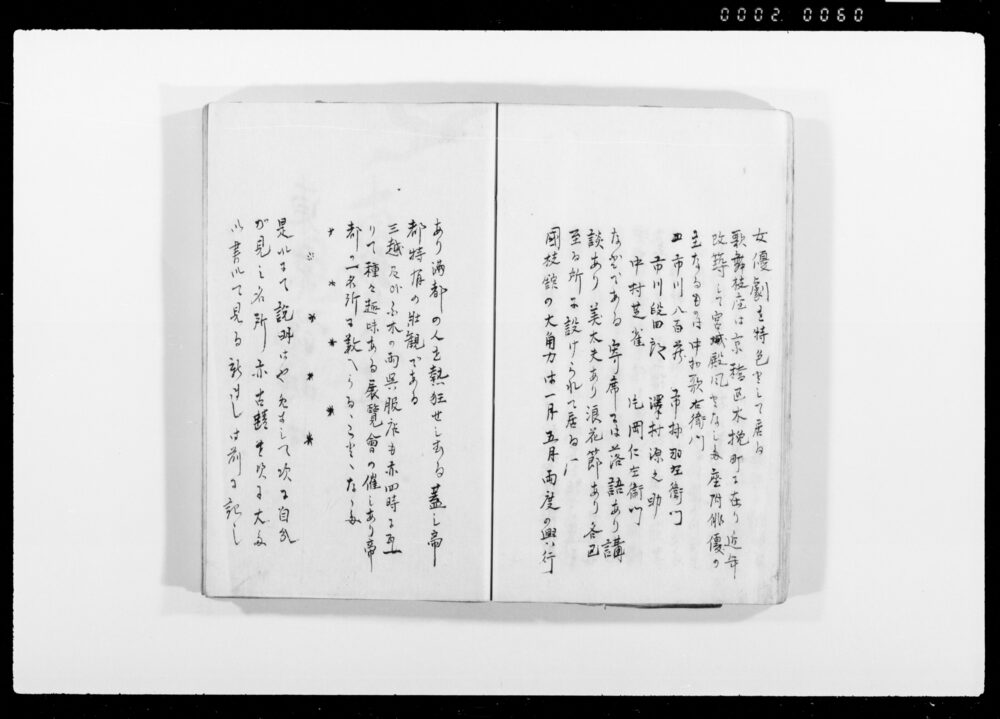 0002 0060
女優劇を特色として居る
歌舞伎座は京橋区木挽町に在り近年
改築して宮城殿風となしぬ座附俳優の
主なるものは中村歌右衛門
市川八百蔵 市村羽左衛門
市川段四郎 澤村源之助
中村芝雀 片岡仁左衛門
などである 寄席には落語あり講
談あり 美太夫あり浪花節あり各区
至る所に設けられて居る
国技館の大角力は一月五月両度の興行
あり満都の人を熱狂せしむる 蓋し帝
都特有の壮観である
三越 木の両呉服店も亦四時に
りて種々趣味ある展覧會の催しあり帝
都の一名所に数へらるゝことゝなりぬ
* * * * * *
是にて説明はやめまして次に自分
が見し名所 亦古蹟を次に
て見る 前に記し